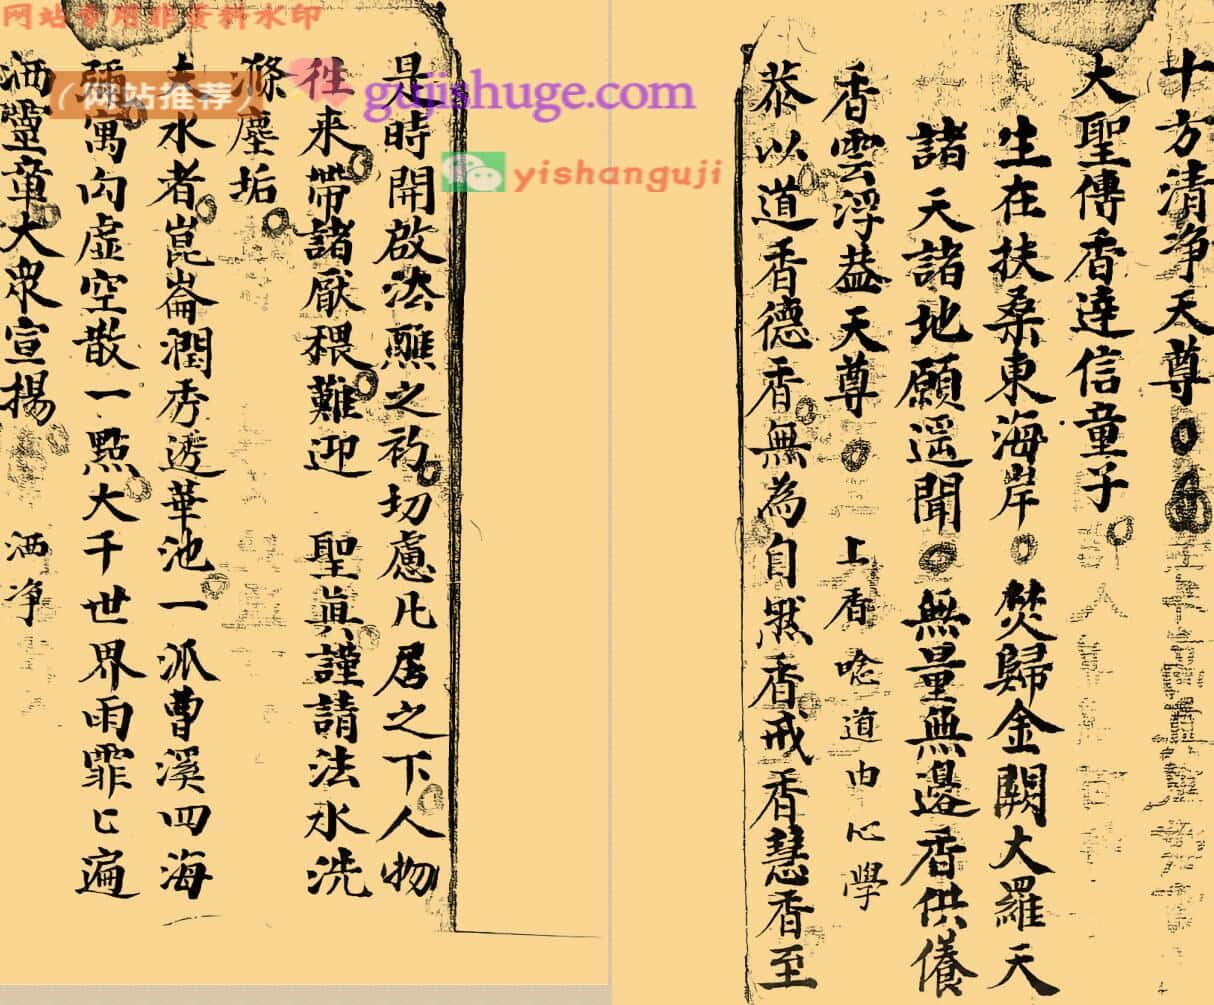 十方清净天尊
大聖傳香達信童子
生在扶桑東海岸 焚歸金闕大羅天
諸天諸地願遥聞 無量無邊香供養
香雲浮盖天尊 上香唸道由心學
恭以道香德香無為自然香戒香慧香至
是時開啟法醮之初切慮凡居之下人物
徃来帶諸厭穢難迎 聖眞謹請法水洗
滌塵垢
夫水者崑崙潤秀透華池一派曹溪四海
寓勾虛空散一點大千世界雨霏匕遍
洒靈章大衆宣揚 洒净
网站专用非资料水印
（网站推荐）
gujishuge.com
yishanguji